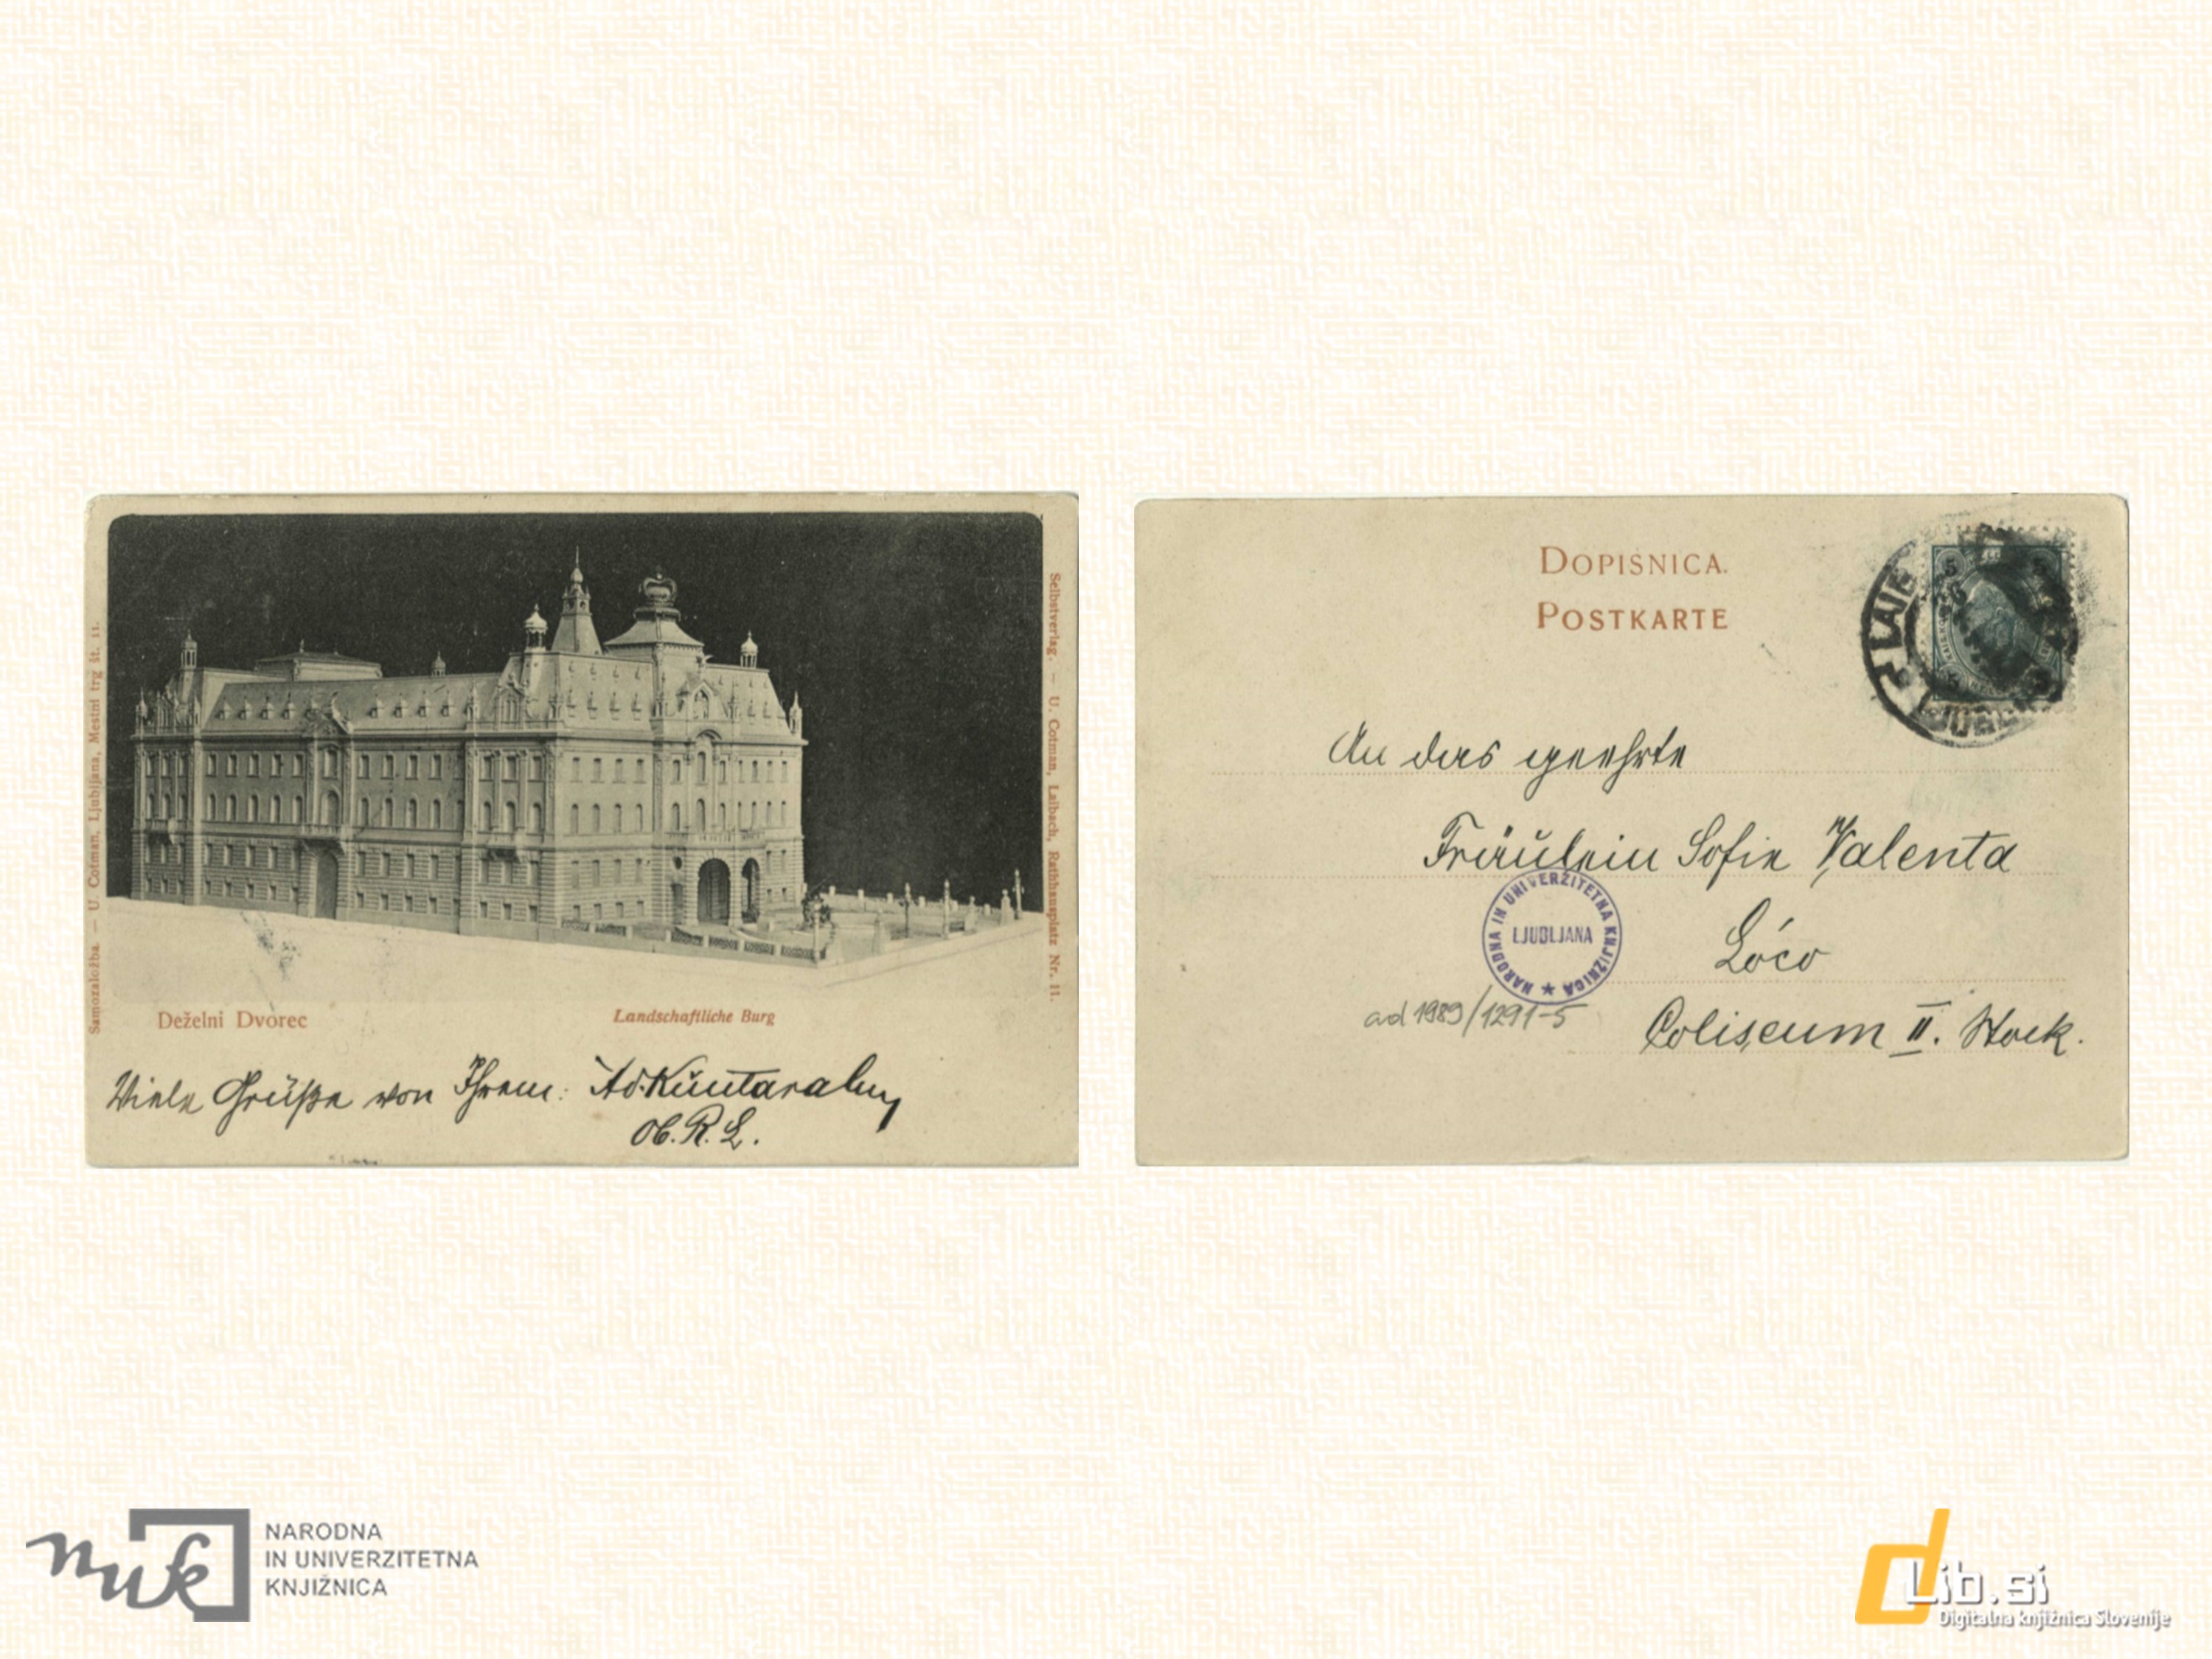 Samozaložba. — U. Cotman, Ljubljana, Mestni trg št. 11.
Selbstverlag. — U. Cotman, Laibach, Rathhausplatz Nr. 11.
Deželni Dvorec
Landschaftliche Burg
Viele Grüße von Ihrem:
Ob. R. L.
DOPISNICA.
POSTKARTE
5
An das geehrte
Fräulein Sofie Valenta
Lóco
Coliseum II. Stock.
NARODNA IN UNIVERZITETNA KNJIŽNICA
LJUBLJANA
ad 1989/1291-5
nuk
NARODNA
IN UNIVERZITETNA
KNJIŽNICA
dLib.si
Digitalna knjižnica Slovenije